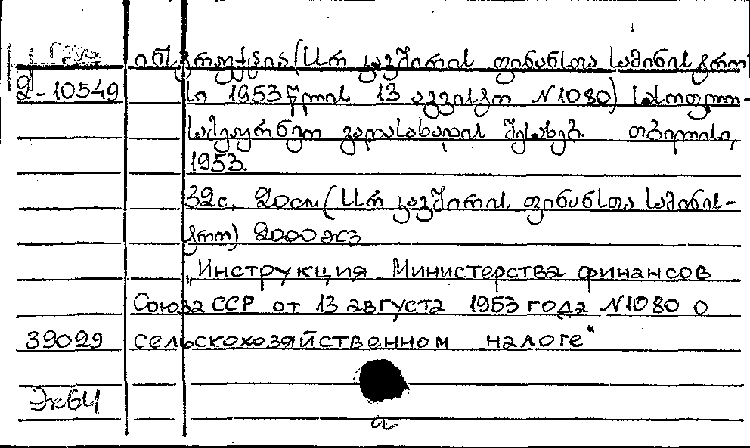 ინსტრუქცია (სსრ კავშირის ფინანსთა სამინისტრო
2-10549 სი 1953 წლის 13 აგვისტო N1080) სასოფლო-
სამეურნეო გადასახადის შესახებ. თბილისი,
1953.
32с. 20см (სსრ კავშირის ფინანსთა სამინის-
ტრო) 2000 экз
„Инструкция Министерства финансов
Союза ССР от 13 августа 1953 года N1080 о
39029 сельскохозяйственном налоге“